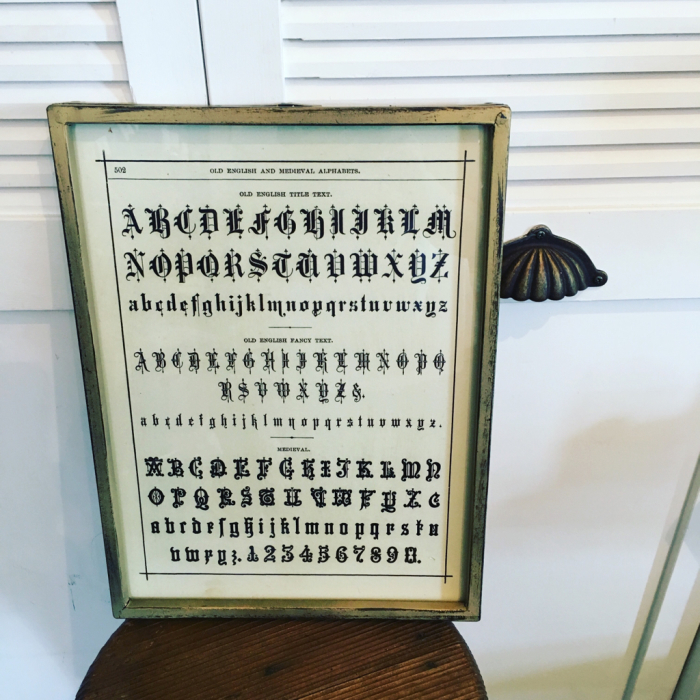 502 OLD ENGLISH AND MEDIEVAL ALPHABETS.
OLD ENGLISH TITLE TEXT.
ABCDEFGHIJKLM
NOPQRSTUVWXYZ
abcdefghijklmnopqrstuvwxyz
OLD ENGLISH FANCY TEXT.
ABCDEFGHIJKLMNOPQ
RSVWXYZ&.
abcdefghijklmnopqrstuvwxyz.
MEDIEVAL.
ABCDEFGHIJKLMN
OPQRSTUVWXYZ&
abcdefghijklmnopqrstu
vwxyz. 1234567890.